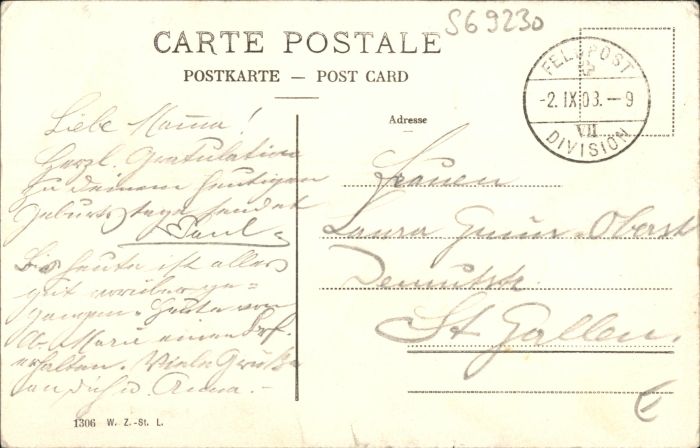 S69230
CARTE POSTALE
POSTKARTE — POST CARD
FELDPOST
-2. IX 03. — 9
VII
DIVISION
Adresse
Liebe Mama!
Herzl. Gratulation
zu deinem heutigen
Geburtstage sendet
Paul
Bis heute ist alles
gut vorüber ge-
gangen. Heute von
A. Marie einen Brf.
erhalten. Viele Grüße
an dich u. Anna. -
Frauen
Laura - Oberst
St Gallen.
1306 W. Z.-St. L.